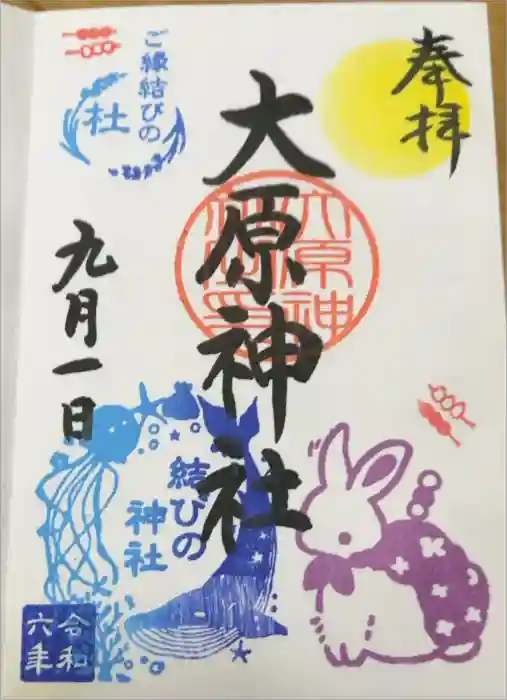 奉拝
大原神社
大原神
ご縁結びの
杜
九月一日
結びの
神社
令和
六年